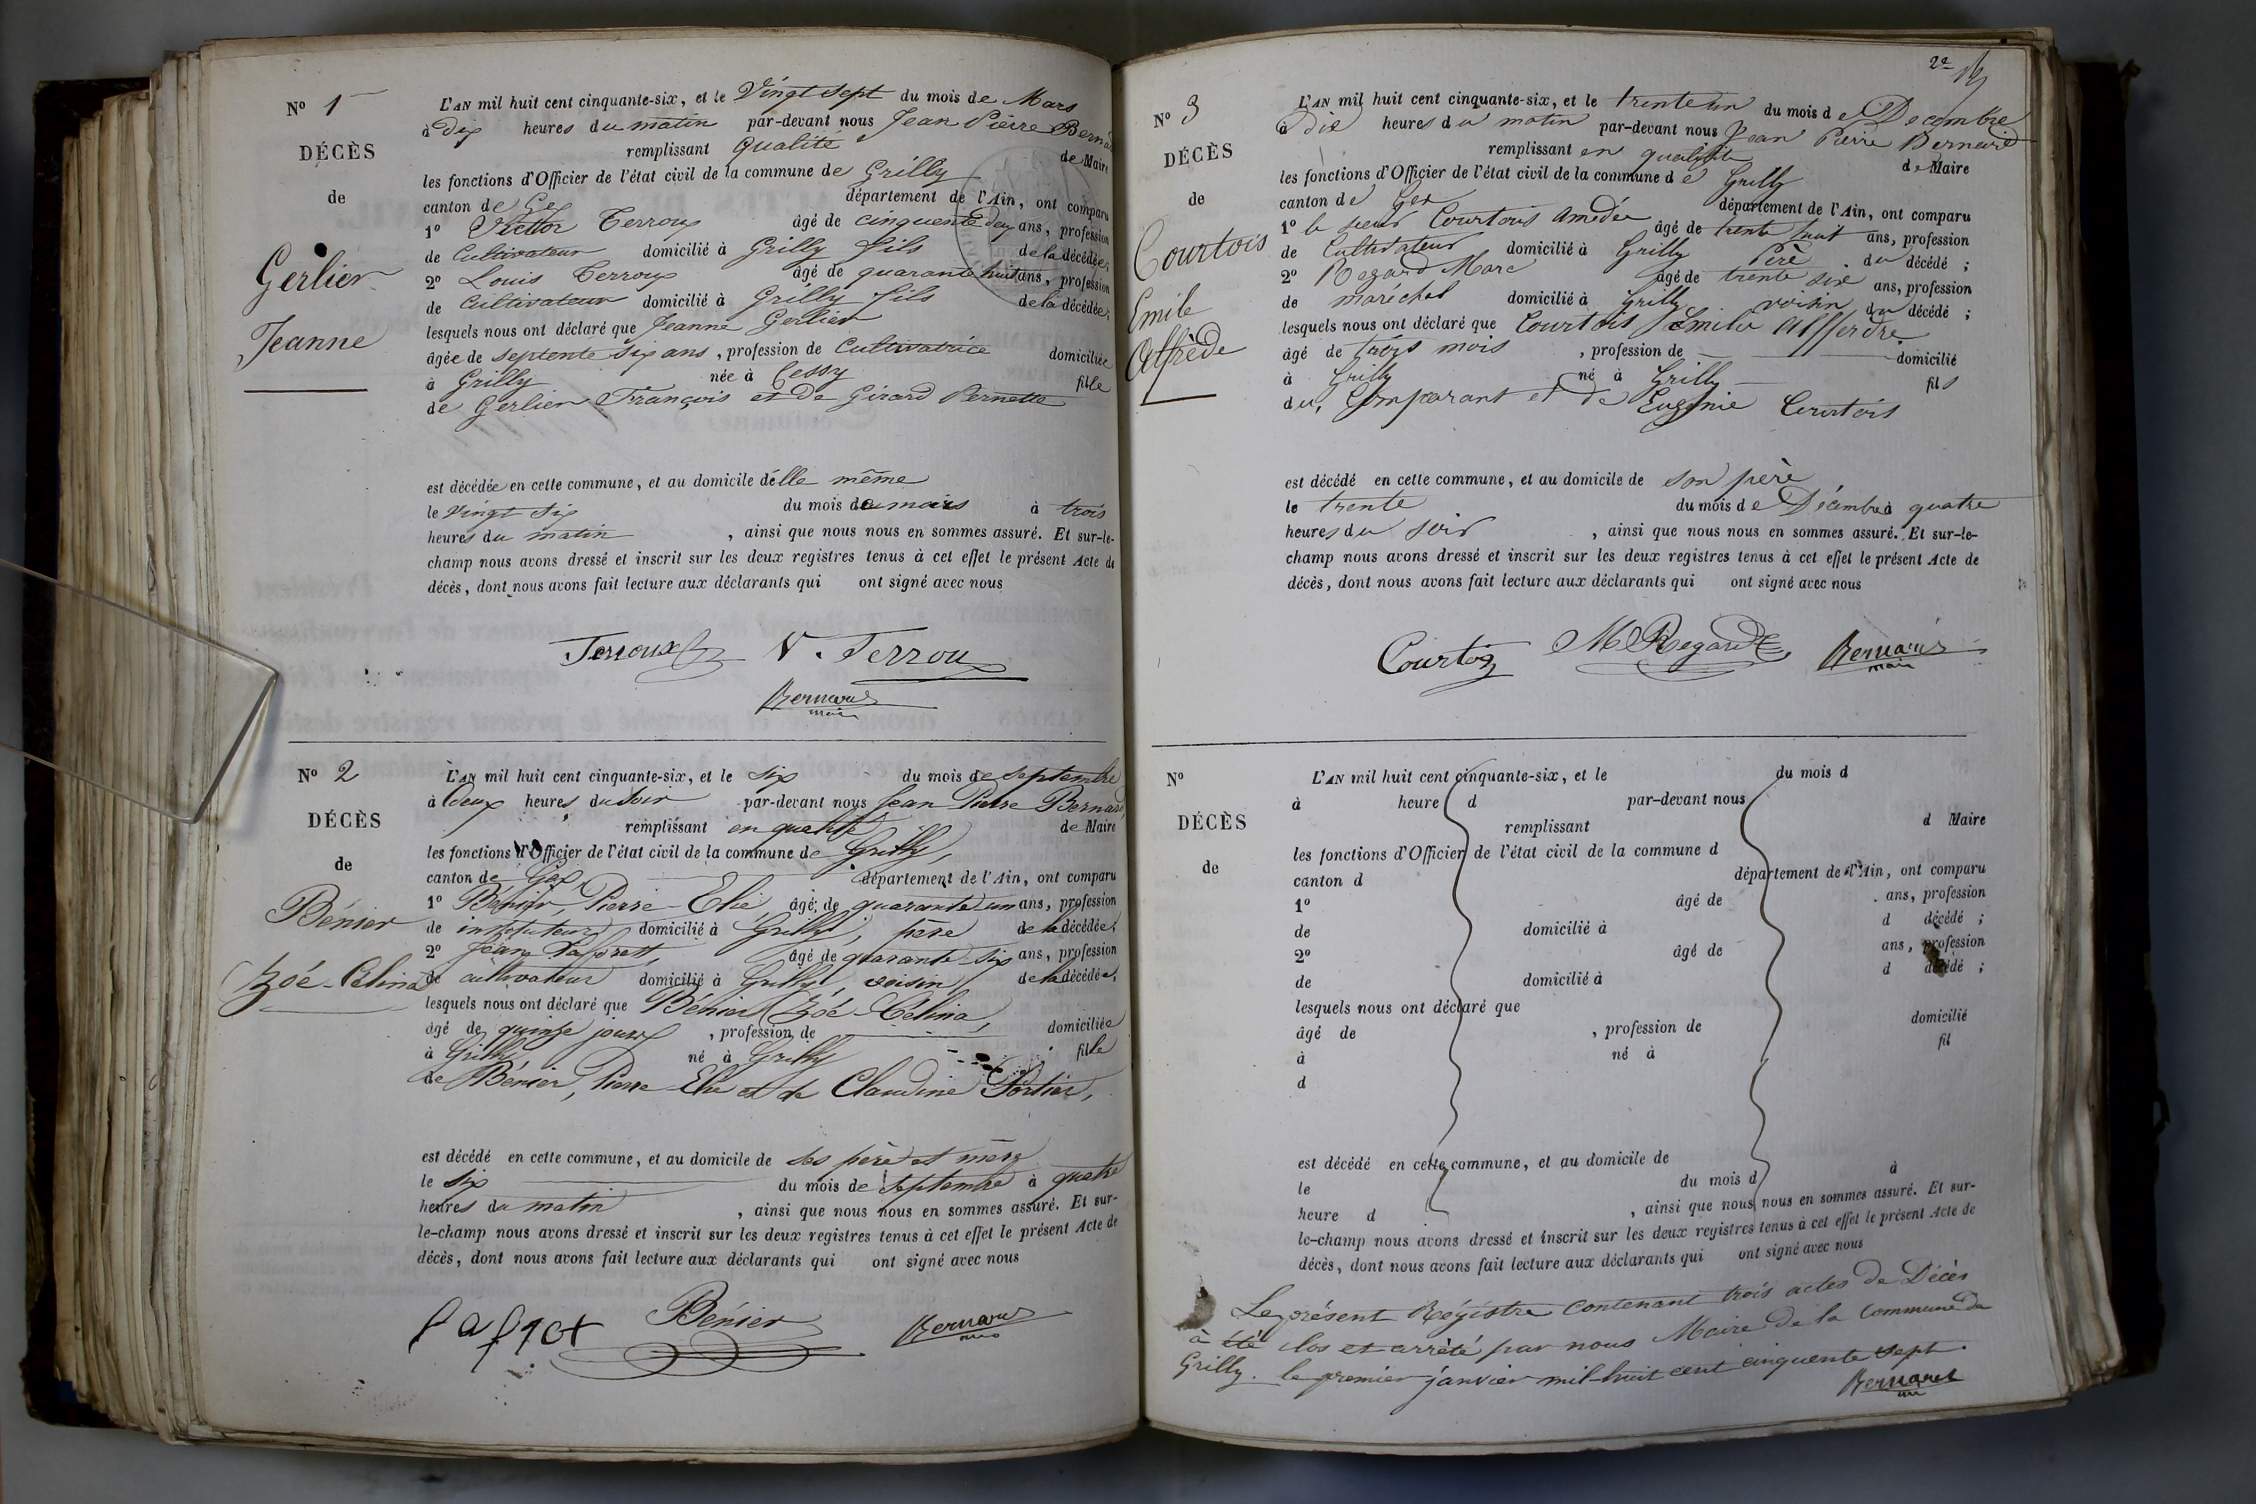 N° 1
DÉCÈS
de
Gerlier
Jeanne
L'AN mil huit cent cinquante-six, et le Vingt sept du mois de Mars
à dix heures du matin par-devant nous Jean Pierre Bernard
remplissant qualité de Maire
les fonctions d'Officier de l'état civil de la commune de Grilly
canton de Gex département de l'Ain, ont comparu
1° Victor Terroux âgé de cinquente deux ans, profession
de Cultivateur domicilié à Grilly fils de la décédée;
2° Louis Terroux âgé de quarante huit ans, profession
de Cultivateur domicilié à Grilly fils de la décédée;
lesquels nous ont déclaré que Jeanne Gerlier
âgée de septente six ans, profession de Cultivatrice domiciliée
à Grilly née à Cessy fille
de Gerlier François et de Girard Pernette
est décédée en cette commune, et au domicile d'elle même
le vingt six du mois de mars à trois
heures du matin , ainsi que nous nous en sommes assuré. Et sur-le-
champ nous avons dressé et inscrit sur les deux registres tenus à cet effet le présent Acte de
décès, dont nous avons fait lecture aux déclarants qui ont signé avec nous
Terroux V. Terroux
Bernard
maire
N° 2
DÉCÈS
de
Bénier
Zoé-Célina
L'AN mil huit cent cinquante-six, et le six du mois de septembre
à deux heures du soir par-devant nous Jean Pierre Bernard,
remplissant en qualité de Maire
les fonctions d'Officier de l'état civil de la commune de Grilly,
canton de Gex, département de l'Ain, ont comparu
1° Bénier, Pierre-Elie, âgé de quarante-un ans, profession
de instituteur domicilié à Grilly, père de la décédée;
2° Jean Lafret, âgé de quarante-six ans, profession
de cultivateur domicilié à Grilly, voisin de la décédée;
lesquels nous ont déclaré que Bénier Zoé-Célina,
âgé de quinze jours, profession de domiciliée
à Grilly né à Grilly fille
de Bénier, Pierre-Elie et de Claudine Portier,
est décédé en cette commune, et au domicile de ses père et mère
le six du mois de septembre à quatre
heures du matin , ainsi que nous nous en sommes assuré. Et sur-
le-champ nous avons dressé et inscrit sur les deux registres tenus à cet effet le présent Acte de
décès, dont nous avons fait lecture aux déclarants qui ont signé avec nous
Bénier Bernard
2e
N° 3
DÉCÈS
de
Courtois
Emile
Alfrède
L'AN mil huit cent cinquante-six, et le trente un du mois de Decembre
à dix heures du matin par-devant nous Jean Pierre Bernard
remplissant en qualité de Maire
les fonctions d'Officier de l'état civil de la commune de Grilly
canton de Gex département de l'Ain, ont comparu
1° le sieur Courtois Amedée âgé de trente huit ans, profession
de Cultivateur domicilié à Grilly Père du décédé;
2° Regard Marc âgé de trente six ans, profession
de maréchal domicilié à Grilly voisin du décédé;
lesquels nous ont déclaré que Courtois Emile Alfferdre
âgé de trois mois , profession de domicilié
à Grilly né à Grilly fils
du Comparant et de Eugénie Courtois
est décédé en cette commune, et au domicile de son père
le trente du mois de Décembre à quatre
heures du soir , ainsi que nous nous en sommes assuré. Et sur-le-
champ nous avons dressé et inscrit sur les deux registres tenus à cet effet le présent Acte de
décès, dont nous avons fait lecture aux déclarants qui ont signé avec nous
Courtois M Regard Bernard
maire
N°
DÉCÈS
de
L'AN mil huit cent cinquante-six, et le du mois d
à heure d par-devant nous
remplissant d Maire
les fonctions d'Officier de l'état civil de la commune d
canton d département de l'Ain, ont comparu
1° âgé de ans, profession
de domicilié à d décédé ;
2° âgé de ans, profession
de domicilié à d décédé ;
lesquels nous ont déclaré que
âgé de , profession de domicilié
à né à fil
d
est décédé en cette commune, et au domicile de
le du mois d à
heure d , ainsi que nous nous en sommes assuré. Et sur-
le-champ nous avons dressé et inscrit sur les deux registres tenus à cet effet le présent Acte de
décès, dont nous avons fait lecture aux déclarants qui ont signé avec nous
Le présent Régistre contenant trois actes de Décès
à été clos et arrêté par nous Maire de la Commune de
Grilly. le premier janvier mil-huit cent cinquente sept.
Bernard